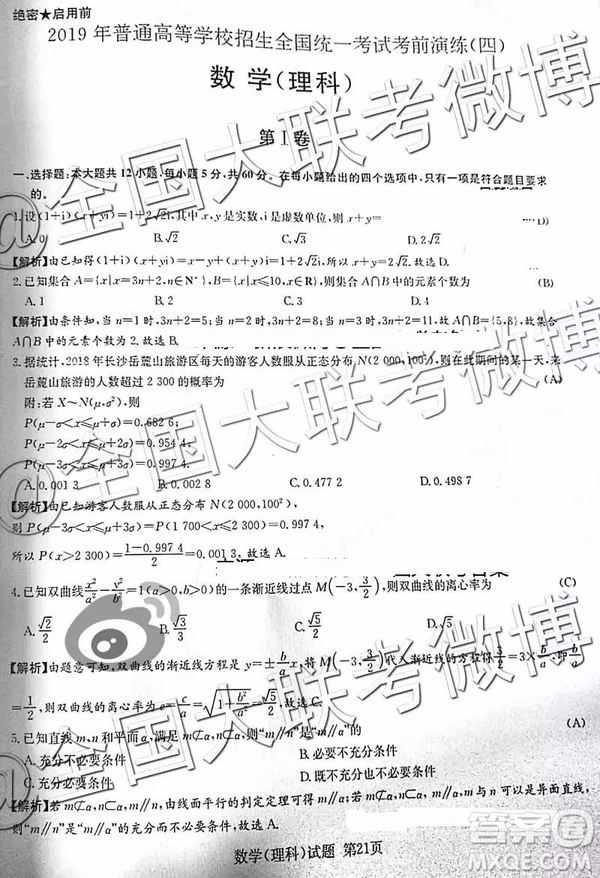 绝密★启用前
2019 年普通高等学校招生全国统一考试考前演练(四)
数 学(理科)
第Ⅰ卷
一、选择题:本大题共 12 小题,每小题 5 分,共 60 分。在每小题给出的四个选项中,只有一项是符合题目要求
的。
1.设(1+i)(x+yi)=1+2√2i,其中 x,y 是实数,i 是虚数单位,则 x+y= (D)
A.0 B.√2 C.√3 D.2√2
【解析】由已知得(1+i)(x+yi)=x-y+(x+y)i=1+2√2i,所以 x+y=2√2.故选 D.
2.已知集合 A={x|x=3n+2,n∈N*},B={x|x≤10,x∈R},则集合 A∩B 中的元素个数为 (B)
A.1 B.2 C.3 D.4
【解析】由条件知,当 n=1 时,3n+2=5;当 n=2 时,3n+2=8;当 n=3 时,3n+2=11.故 A∩B={5,8},故集合
A∩B 中的元素个数为 2.
3.据统计,2018 年长沙岳麓山旅游区每天的游客人数服从正态分布 N(2 000,100²),则在此期间的某一天,来
岳麓山旅游的人数超过 2 300 的概率为 (A)
附:若 X~N(μ,σ²),
P(μ-σ<x≤μ+σ)=0.682 6;
P(μ-2σ<x≤μ+2σ)=0.954 4;
P(μ-3σ<x≤μ+3σ)=0.997 4.
A.0.001 3 B.0.022 8 C.0.477 2 D.0.498 7
【解析】由已知游客人数服从正态分布 N(2 000,100²),
则 P(μ-3σ<x≤μ+3σ)=P(1 700<x≤2 300)=0.997 4,
所以 P(x>2 300)=(1-0.997 4)/2=0.001 3,故选 A.
4.已知双曲线 x²/a²-y²/b²=1(a>0,b>0)的一条渐近线过点 M(-3,3/2),则双曲线的离心率为 (C)
A.√2/2 B.√3/3 C.√5/2 D.√3
【解析】由题意可知,双曲线的渐近线方程是 y=±b/a x,将 M(-3,3/2)代入渐近线的方程 3/2=3×b/a,即 b/a
=1/2,则双曲线的离心率为 e=c/a=√(1+b²/a²)=√5/2,故选 C.
5.已知直线 m,n 和平面 α,满足 m⊄α,n⊂α,则“m∥n”是“m∥α”的 (A)
A.充分不必要条件 B.必要不充分条件
C.充分必要条件 D.既不充分也不必要条件
【解析】若 m⊄α,n⊂α,m∥n,由线面平行的判定定理可得 m∥α.若 m⊄α,n⊂α,m∥α,则 m 与 n 可以是异面直线,
则“m∥n”是“m∥α”的充分不必要条件,故选 A.
数学(理科)试题 第21页
@全国大联考微博
@全国大联考微博
答案圈